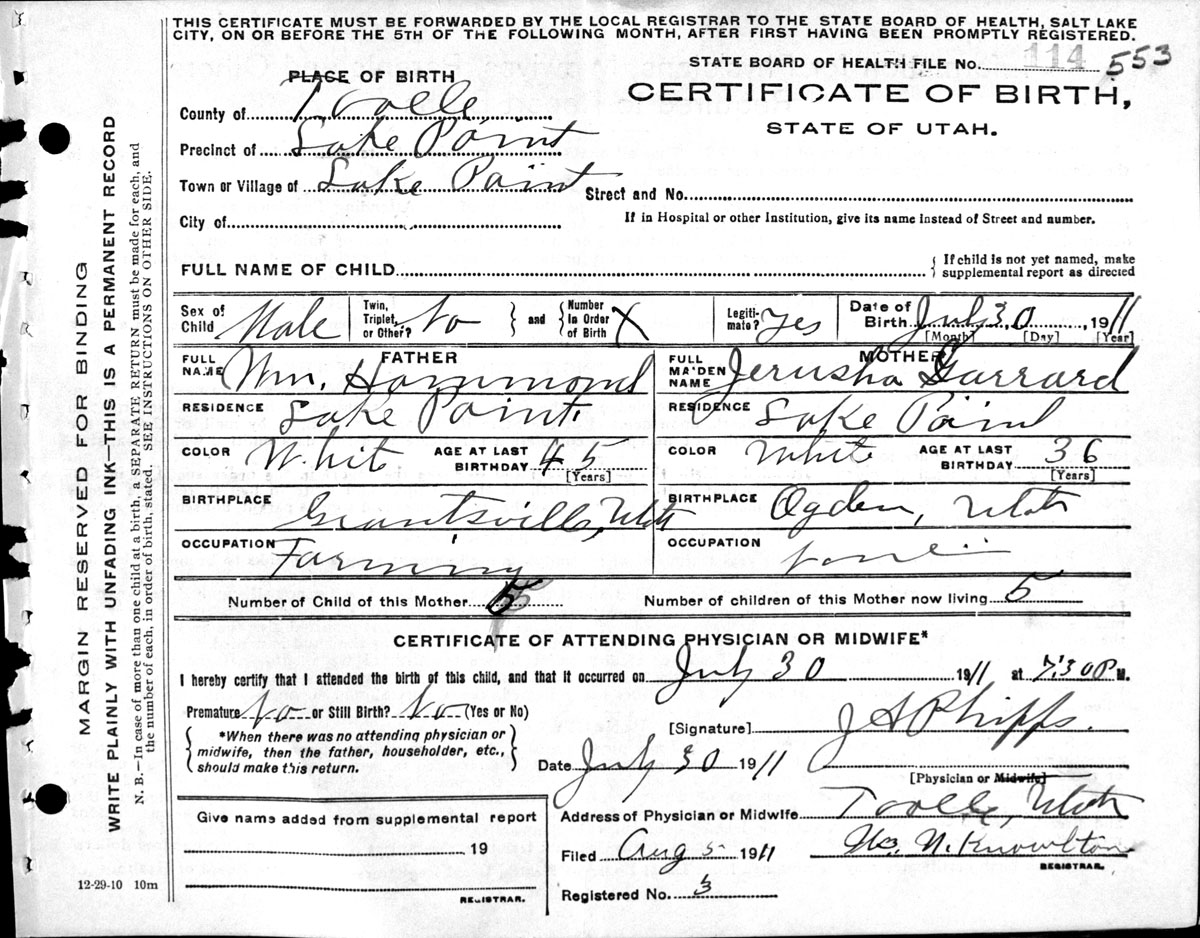 THIS CERTIFICATE MUST BE FORWARDED BY THE LOCAL REGISTRAR TO THE STATE BOARD OF HEALTH, SALT LAKE
CITY, ON OR BEFORE THE 5TH OF THE FOLLOWING MONTH, AFTER FIRST HAVING BEEN PROMPTLY REGISTERED.
STATE BOARD OF HEALTH FILE No. 114 553
PLACE OF BIRTH
CERTIFICATE OF BIRTH,
STATE OF UTAH.
County of Tooele
Precinct of Lake Point
Town or Village of Lake Point
Street and No.
City of
If in Hospital or other Institution, give its name instead of Street and number.
FULL NAME OF CHILD
If child is not yet named, make
supplemental report as directed
Sex of Child Male
Twin, Triplet, or Other? No
and Number in Order of Birth X
Legitimate? Yes
Date of Birth July 30, 1911
[Month] [Day] [Year]
FATHER
MOTHER
FULL NAME Wm. Hammond
FULL MAIDEN NAME Jerusha Garrard
RESIDENCE Lake Point
RESIDENCE Lake Point
COLOR Whit AGE AT LAST BIRTHDAY 45 [Years]
COLOR White AGE AT LAST BIRTHDAY 36 [Years]
BIRTHPLACE Grantsville, Utah
BIRTHPLACE Ogden, Utah
OCCUPATION Farming
OCCUPATION none
Number of Child of this Mother 5
Number of children of this Mother now living 5
CERTIFICATE OF ATTENDING PHYSICIAN OR MIDWIFE*
I hereby certify that I attended the birth of this child, and that it occurred on July 30 1911 at 7:30 P M.
Premature No or Still Birth? No (Yes or No)
*When there was no attending physician or
midwife, then the father, householder, etc.,
should make this return.
[Signature] J A Phipps.
Date July 30 1911
[Physician or Midwife]
Give name added from supplemental report
19
REGISTRAR.
Address of Physician or Midwife Tooele, Utah
Filed Aug 5 1911 N. Knowlton
REGISTRAR.
Registered No. 3
12-29-10 10m
MARGIN RESERVED FOR BINDING
WRITE PLAINLY WITH UNFADING INK—THIS IS A PERMANENT RECORD
N. B.—In case of more than one child at a birth, a SEPARATE RETURN must be made for each, and
the number of each, in order of birth, stated. SEE INSTRUCTIONS ON OTHER SIDE.